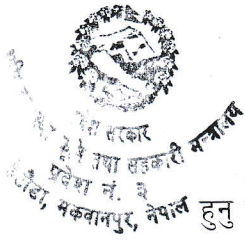 सरकार
तथा सहकारी मन्त्रालय
प्रदेश नं. ३
मकवानपुर, नेपाल
हुनु